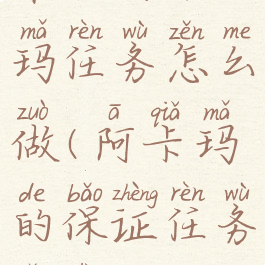 mǎ rèn wù zěn me
玛任务怎么
zuò ā qiǎ mǎ
做(阿卡玛
de bǎo zhèng rèn wù
的保证任务